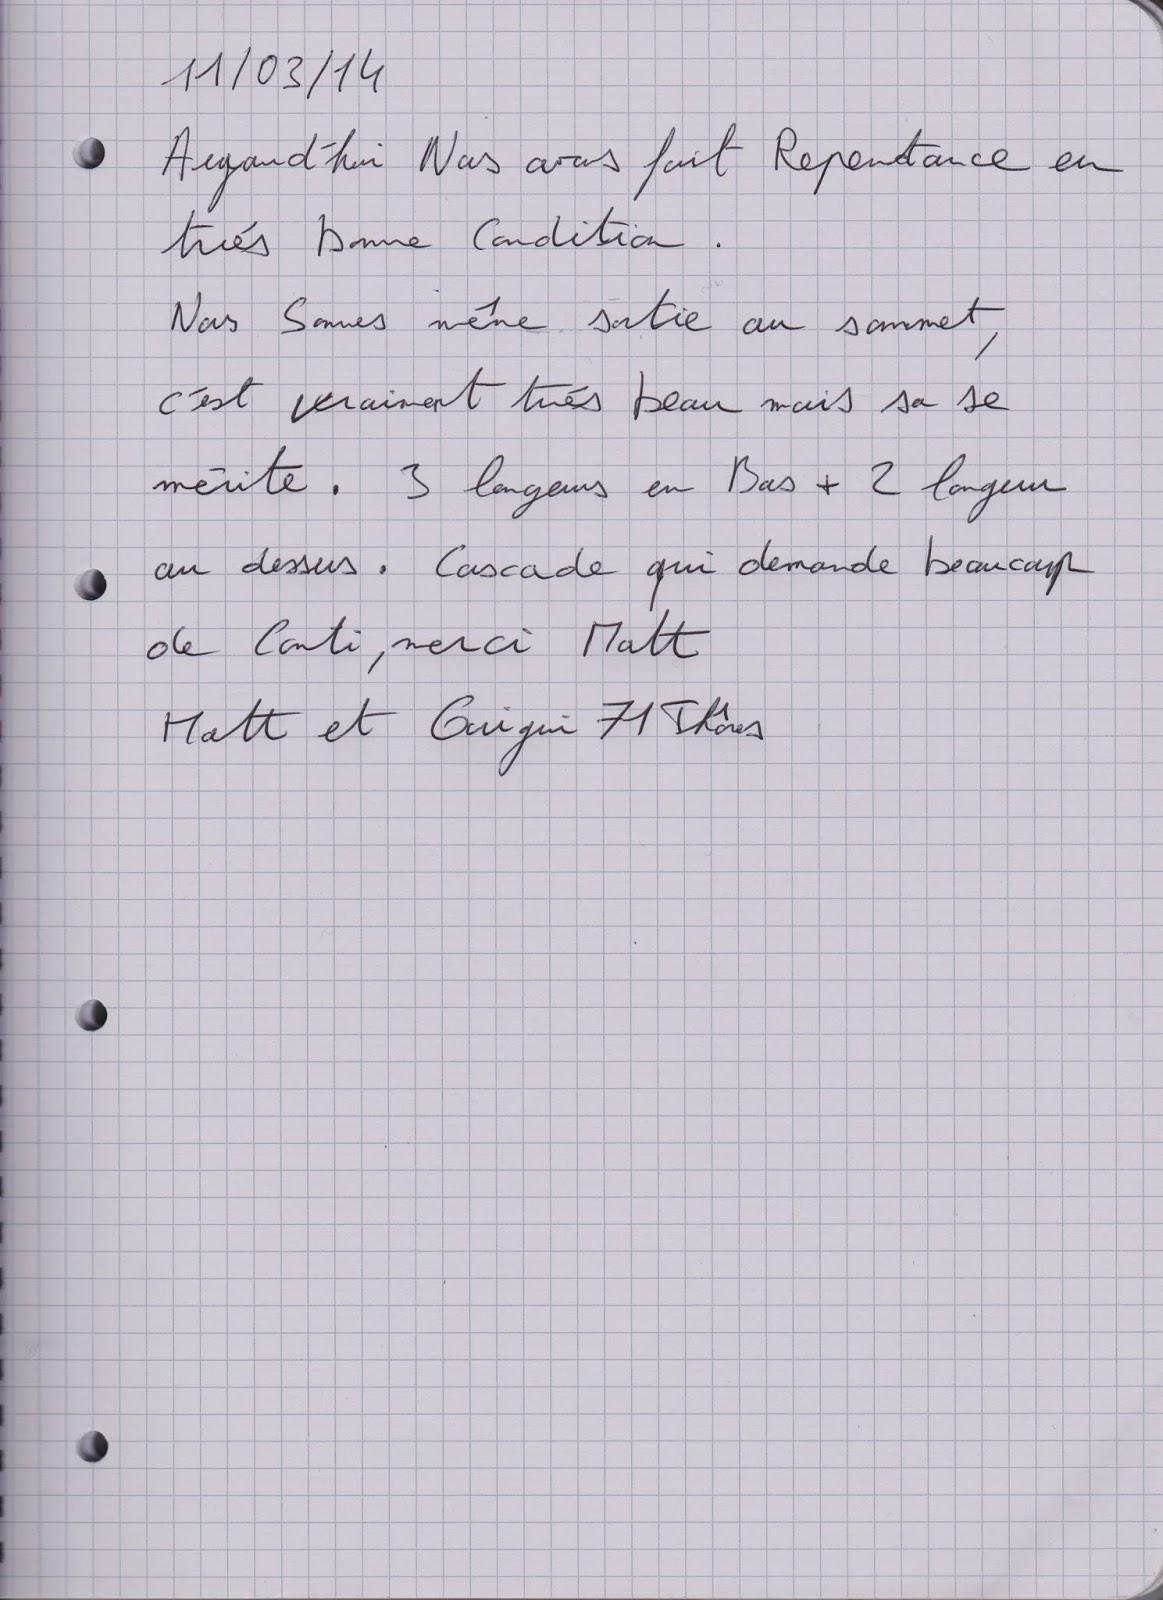 11/03/14
Aujourd'hui Nous avons fait Repentance en
trés bonne Condition .
Nous Sommes même sortie au sommet,
c'est vraiment trés beau mais sa se
mérite . 3 longeurs en Bas + 2 longeur
au dessus . Cascade qui demande beaucoup
de Conti, merci Matt
Matt et Guigui 71